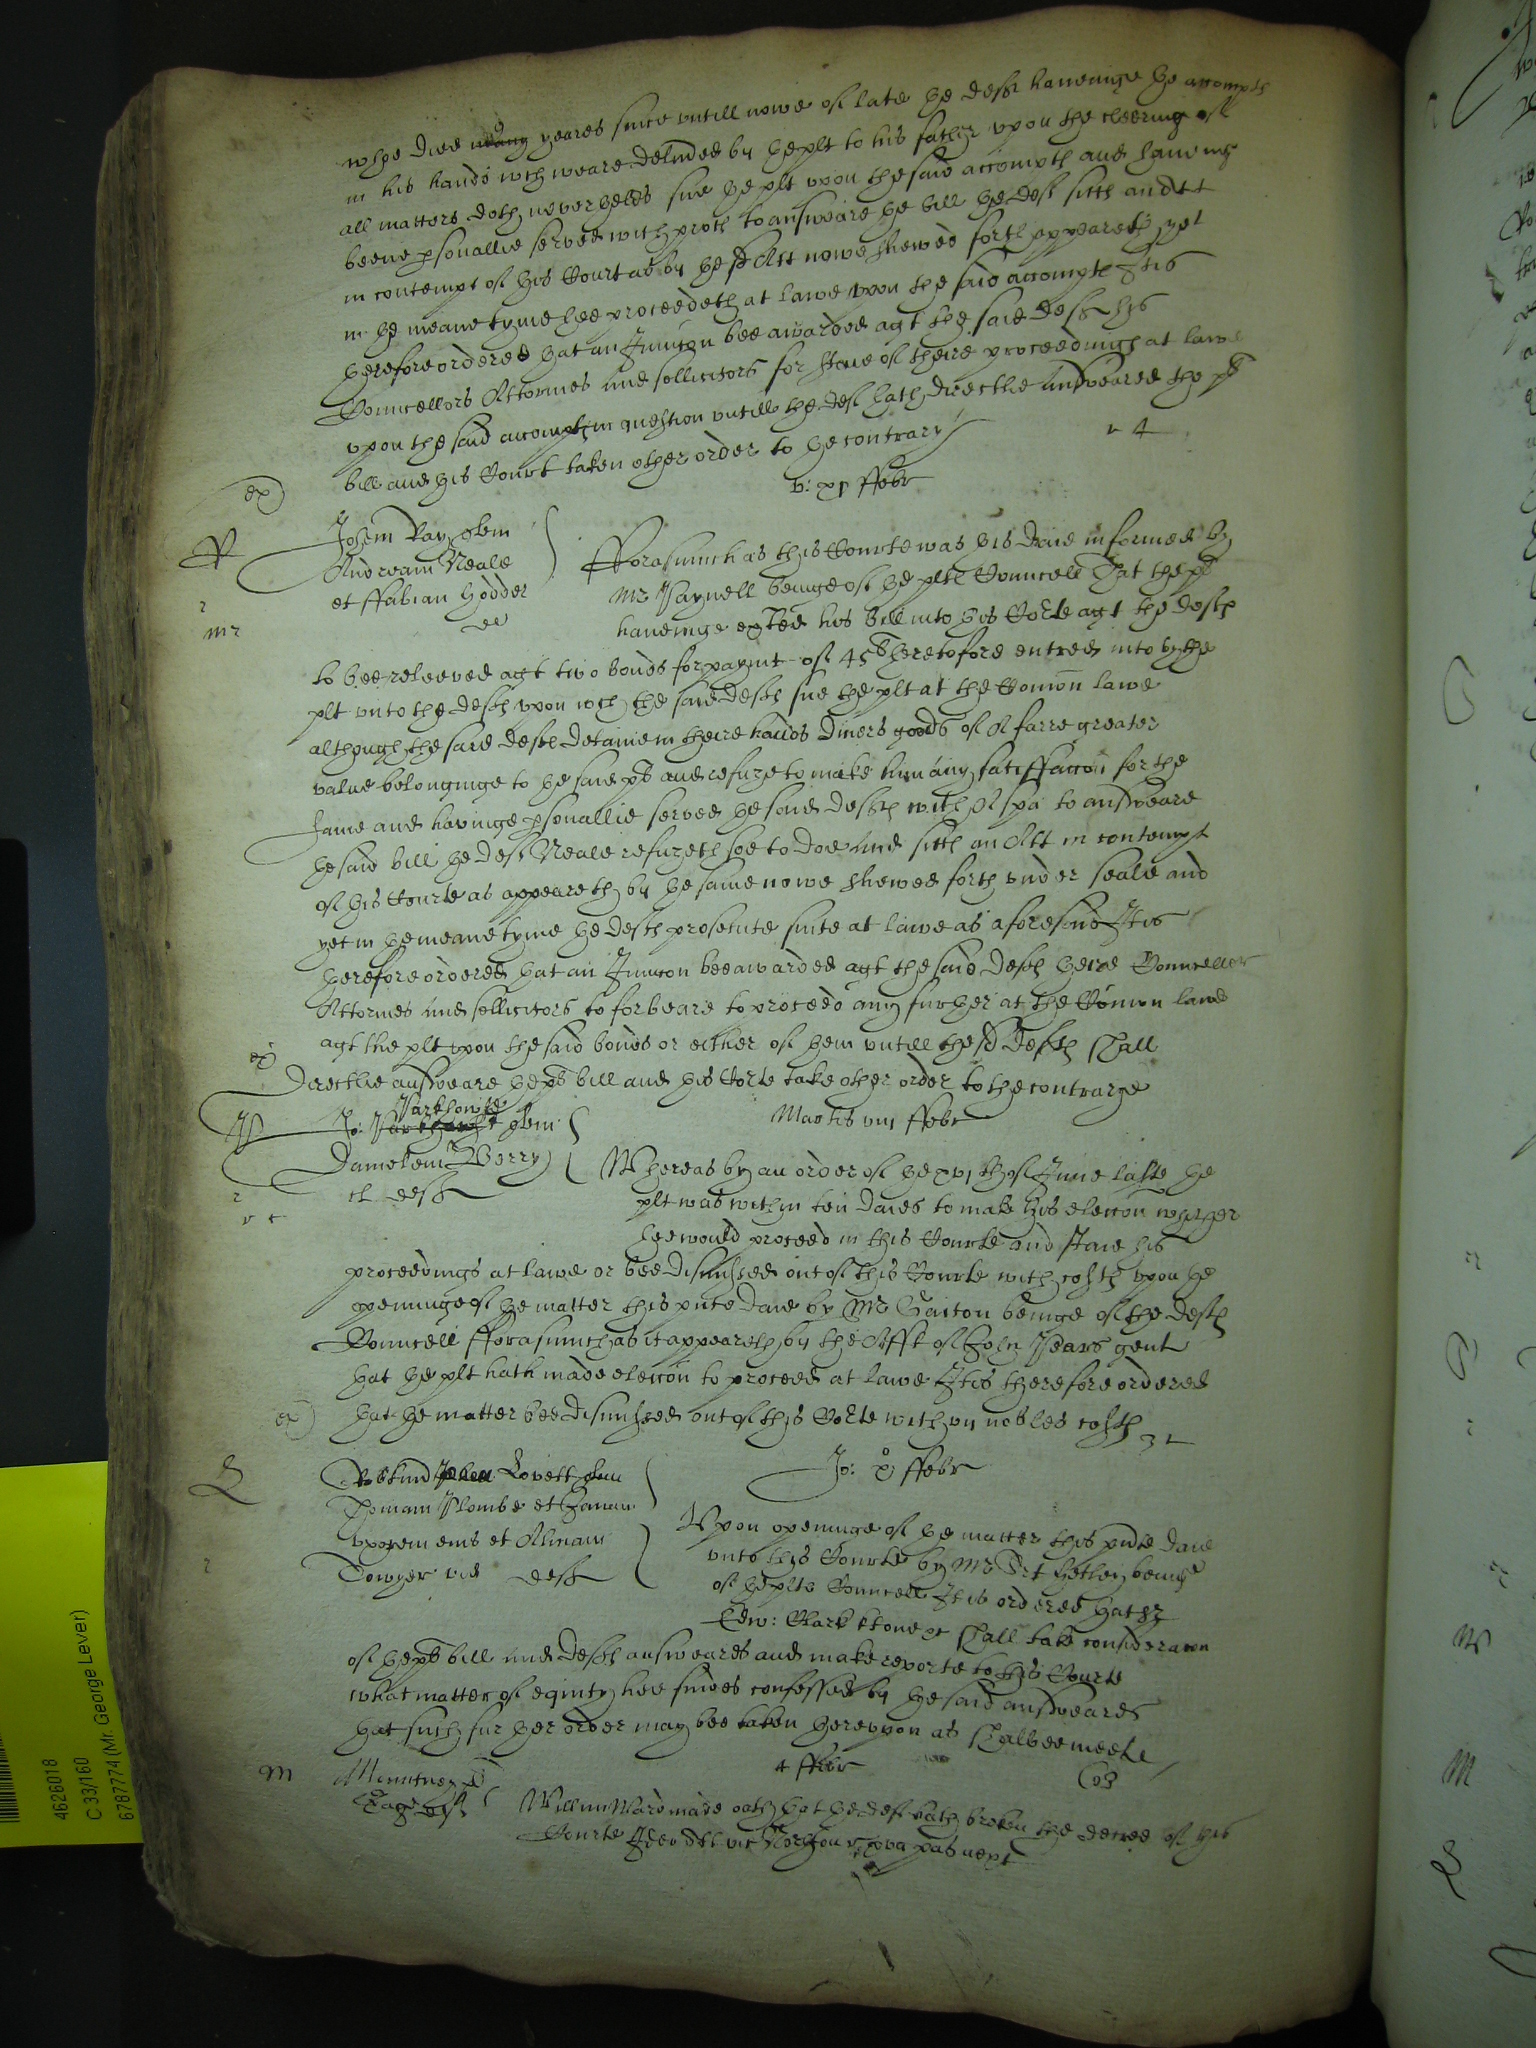 whoe died many yeares since untill nowe of late the deft haveinge the accompts
in his hands wch weare deliued by the plt to his father upon the cleeringe of
all matters doth neverthelesse sue the plt upon the said accompts and haveing
beene psonallie served with proces to answeare the bill the deft sitth an Att
in contempt of this Court as by the sd Att nowe shewed forth appeareth yet
in the meane tyme hee proceedeth at lawe upon the said accompts It is
therefore ordered that an Iniuncon bee awarded agt the said deft his
Councellors Attornies and sollicitors for staie of theire proceedings at lawe
upon the said accompts in question untill the deft hath directlie answeared the pts
bill and this Court taken other order to the contrary
ex
v: xi ffebr
R
Johem Ray quem
Andream Neale
et ffabian Hodder
defs
mr
fforasmuch as this Courte was this daie informed by
Mr Parnell beinge of the plts Councell That the pt
haveinge exited his bill into this Corte agt the defts
to bee releeved agt two bonds for paymt of 45 heretofore entred into by the
plt unto the defts upon wch the said defts sue the plt at the Comon lawe
although the said defts detaine in theire hands divers goods of A farre greater
value belonginge to the said pt and refuze to make him any satisffaccon for the
same and havinge psonallie served the said defts with A spa to answeare
the said bill the deft Neale refuzeth soe to doe and sitth an Att in contempt
of this Courte as appeareth by the same nowe shewed forth under seale and
yet in the meane tyme the defts prosecute suite at lawe as aforesaid It is
therefore ordered that an Iniuncon bee awarded agt the said defts theire Councellors
Attornies and sollicitors to forbeare to proceed any further at the Comon lawe
agt the plt upon the said bonds or either of them untill the sd defts shall
ex
directlie answeare the pts bill and this Corte take other order to the contrarye
Parkhowse
P
Jo: quem
Danielem Berry
et defs
Martis viij ffebr
Whereas by an order of the xvjth of June laste the
plt was within ten daies to make his eleccon whether
hee would proceed in this Courte and staie his
proceedings at lawe or bee dismissed out of this Courte with costs upon the
openinge of the matter this pnte daie by Mr Gaiton beinge of the defts
Councell fforasmuch as it appeareth by the Afft of John Pears gent
that the plt hath made eleccon to proceed at lawe It is therefore ordered
ex
that the matter bee dismissed out of this Corte with vij nobles costs
L
Lovett quem
Thomam Plombe et Janam
uxorem eius et Aliciam
Towyer vid defs
Jo: x ffebr
Upon openinge of the matter this pnte daie
unto this Courte by Mr Srt Hetley beinge
of the plts Councell It is ordered that Sr
Edw: Clark knt one &c shall take consideracon
of the pts bill and defts answeares and make reporte to this Courte
what matter of equity hee findes confessed by the said answeares
that such further order may bee taken thereupon as shalbee meete
M
4 ffebr
Page def
Willm Ward made oath that the deft hath broken the decree of this
Courte Ideo
4626018
C 33/160
6787774 (Mr. George Lever)